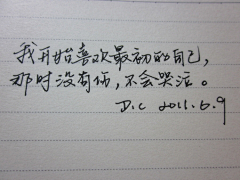 我开始喜欢最初的自己,
那时没有伤,不会哭泣。
D.C 2011.6.9